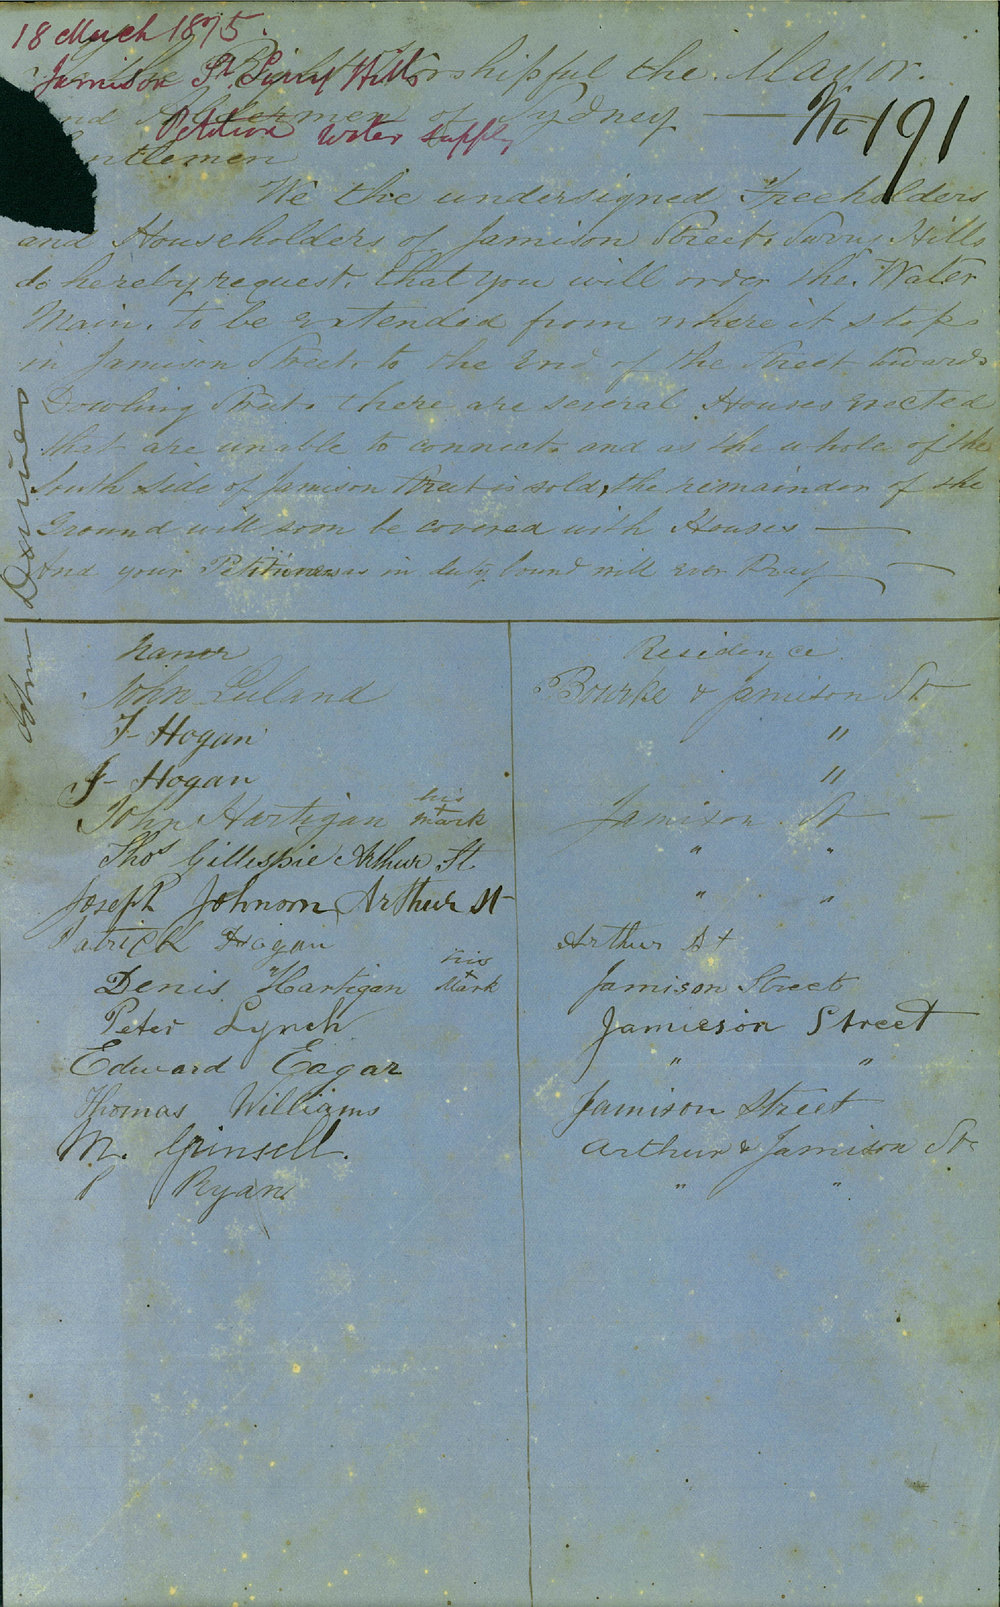 18 March 1875.
Jamison St. Surry Hills
Petition water supply
No 191
Worshipful the Mayor.
and Aldermen of Sydney
ntlemen
We the undersigned Freeholders
and Householders of Jamison Street, Surry Hills
do hereby request, that you will order the Water
Main, to be extended from where it stops
in Jamison Street, to the End of the Street towards
Dowling Street, there are several Houses Erected
that are unable to connect, and as the whole of the
South side of Jamison Street is sold, the remainder of the
Ground will soon be covered with Houses
And your Petitioners as in duty bound will ever Pray
John
Names Residence
John Leland Bourke & Jamison St
F- Hogan "
J- Hogan "
John Hartigan his + mark Jamison St
Thos Gillespie Arthur St. " "
Joseph Johnson Arthur St " "
Patrick Hogan Arthur St
Denis Hartigan his + Mark Jamison Street
Peter Lynch Jamieson Street
Edward Eagar " "
Thomas Williams Jamison Street
M. Grinsell. Arthur & Jamison St
P Ryan " "